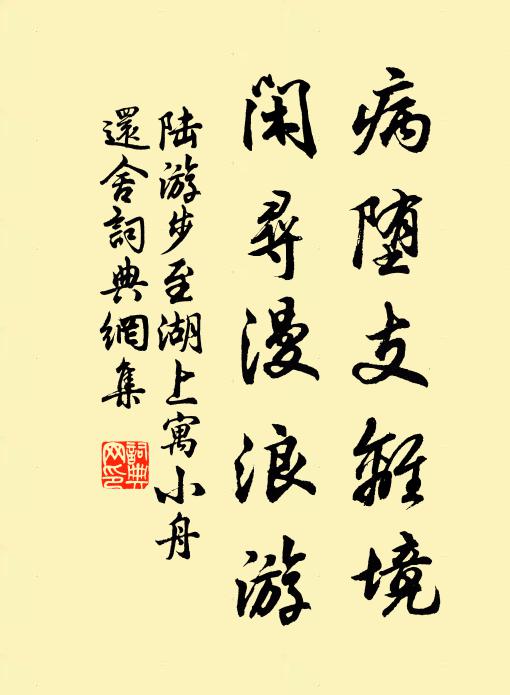 病堕支離境
閑尋漫浪游
陆游步至湖上寓小舟
還舍詞典網集
詞典
网印